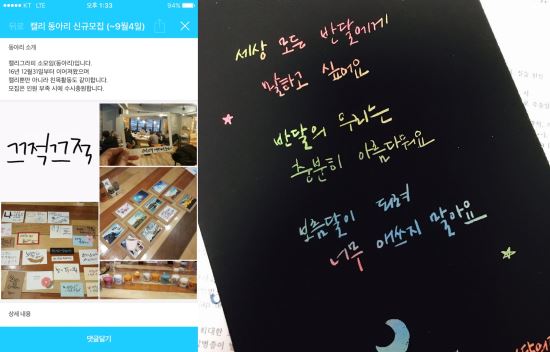 KT LTE
오후 1:33
94%
뒤로 캘리 동아리 신규모집 (~9월4일)
동아리 소개
캘리그라피 소모임(동아리)입니다.
16년 12월31일부터 이어져왔으며
캘리뿐만 아니라 친목활동도 같이합니다.
모집은 인원 부족 시에 수시충원합니다.
끄적끄적
상세 내용
댓글달기
세상 모든 반달에게
말하고 싶어요
반달의 우리는
충분히 아름다워요
보름달이 되려
너무 애쓰지 말아요